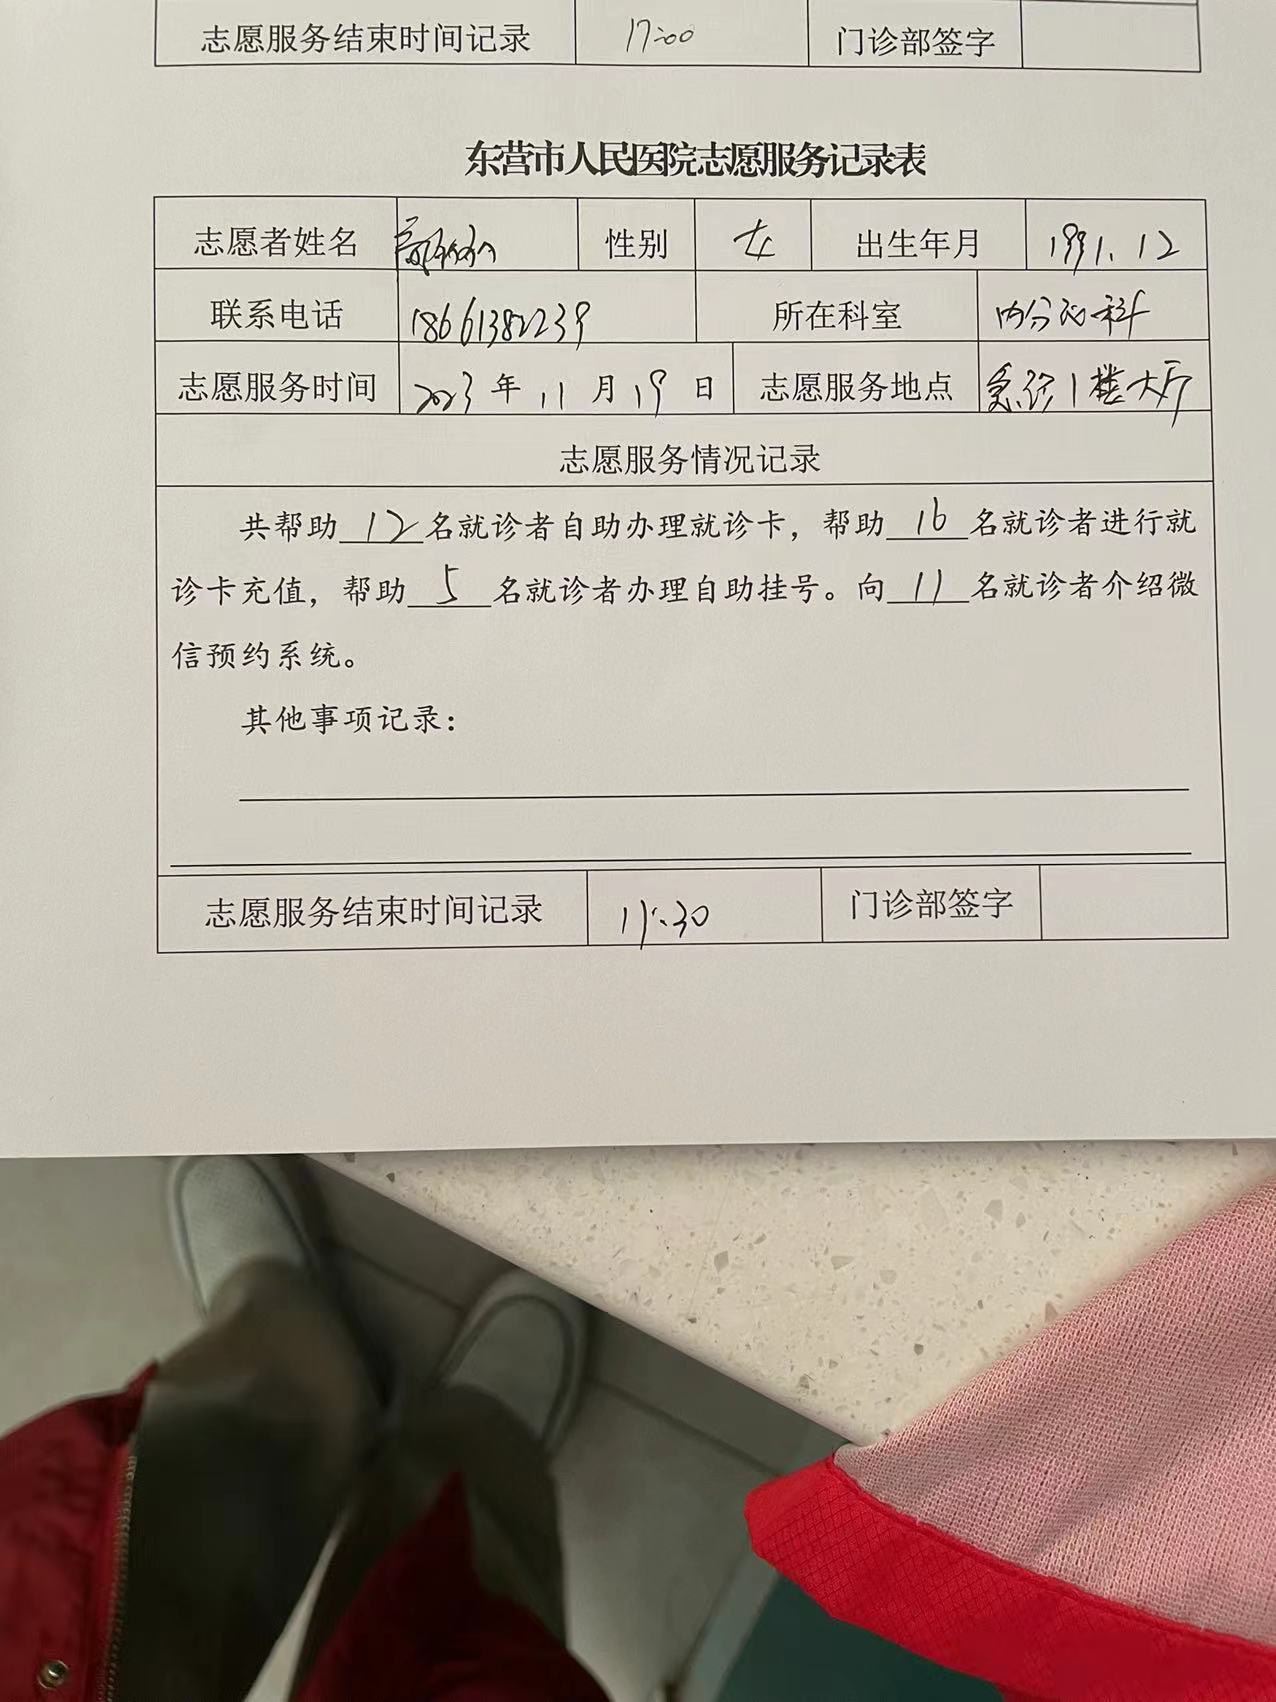 志愿服务结束时间记录 17:00 门诊部签字
东营市人民医院志愿服务记录表
志愿者姓名 性别 女 出生年月 1991.12
联系电话 18661382239 所在科室 内分泌科
志愿服务时间 2023年11月19日 志愿服务地点 急诊1楼大厅
志愿服务情况记录
共帮助12名就诊者自助办理就诊卡，帮助16名就诊者进行就
诊卡充值，帮助5名就诊者办理自助挂号。向11名就诊者介绍微
信预约系统。
其他事项记录：
志愿服务结束时间记录 11:30 门诊部签字